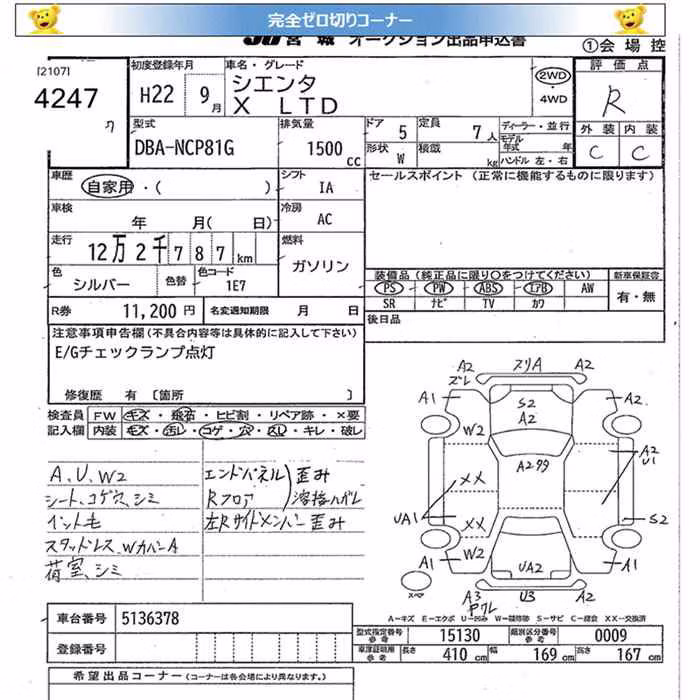 完全ゼロ切りコーナー
JU宮城 オークション出品申込書
①会場控
[2107]
4247
7
初度登録年月
H22 9月
車名・グレード
シエンタ
X LTD
2WD
・
4WD
評価点
R
外装 内装
C C
型式
DBA-NCP81G
排気量
1500 cc
ドア 5
定員 7人
形状 W
積載 kg
ディーラー・並行
モデル年式 年
ハンドル 左・右
車歴
自家用・( )
シフト
IA
セールスポイント (正常に機能するものに限ります)
車検
年 月( 日)
冷房
AC
走行
12万2千787km
燃料
ガソリン
色
シルバー
色替
色コード
1E7
装備品(純正品に限り○をつけてください)
新車保証書
PS PW ABS エアB AW
SR ナビ TV カワ
有・無
R券 11,200円
名変通知期限 月 日
後日品
注意事項申告欄(不具合内容等は具体的に記入して下さい)
E/Gチェックランプ点灯
修復歴 有 [箇所 ]
検査員記入欄
FW キズ・飛石・ヒビ割・リペア跡・×要
内装 キズ・汚レ・コゲ・穴・スレ・キレ・破レ
A、U、W2
シート、コゲ穴、シミ
イット毛
スタッドレス、WカバーA
荷室、シミ
エンドパネル 歪み
Rフロア 溶接ハガレ
左Rサイドメンバー歪み
A2 スリA A2
ズレ
A1
S2
A2
A2
W2
A299
A2
U1
XX
UA1
XX
S2
A1
W2
UA2
A1
スペア
A3 U3 A2
ヤワレ
A=キズ E=エクボ U=凹み W=補修跡 S=サビ C=腐食 XX=交換済
車台番号 5136378
登録番号
型式指定番号 参考 15130
類別区分番号 参考 0009
車庫証明用 参考 長さ 410cm 幅 169cm 高さ 167cm
希望出品コーナー(コーナーは各会場により異なります。)